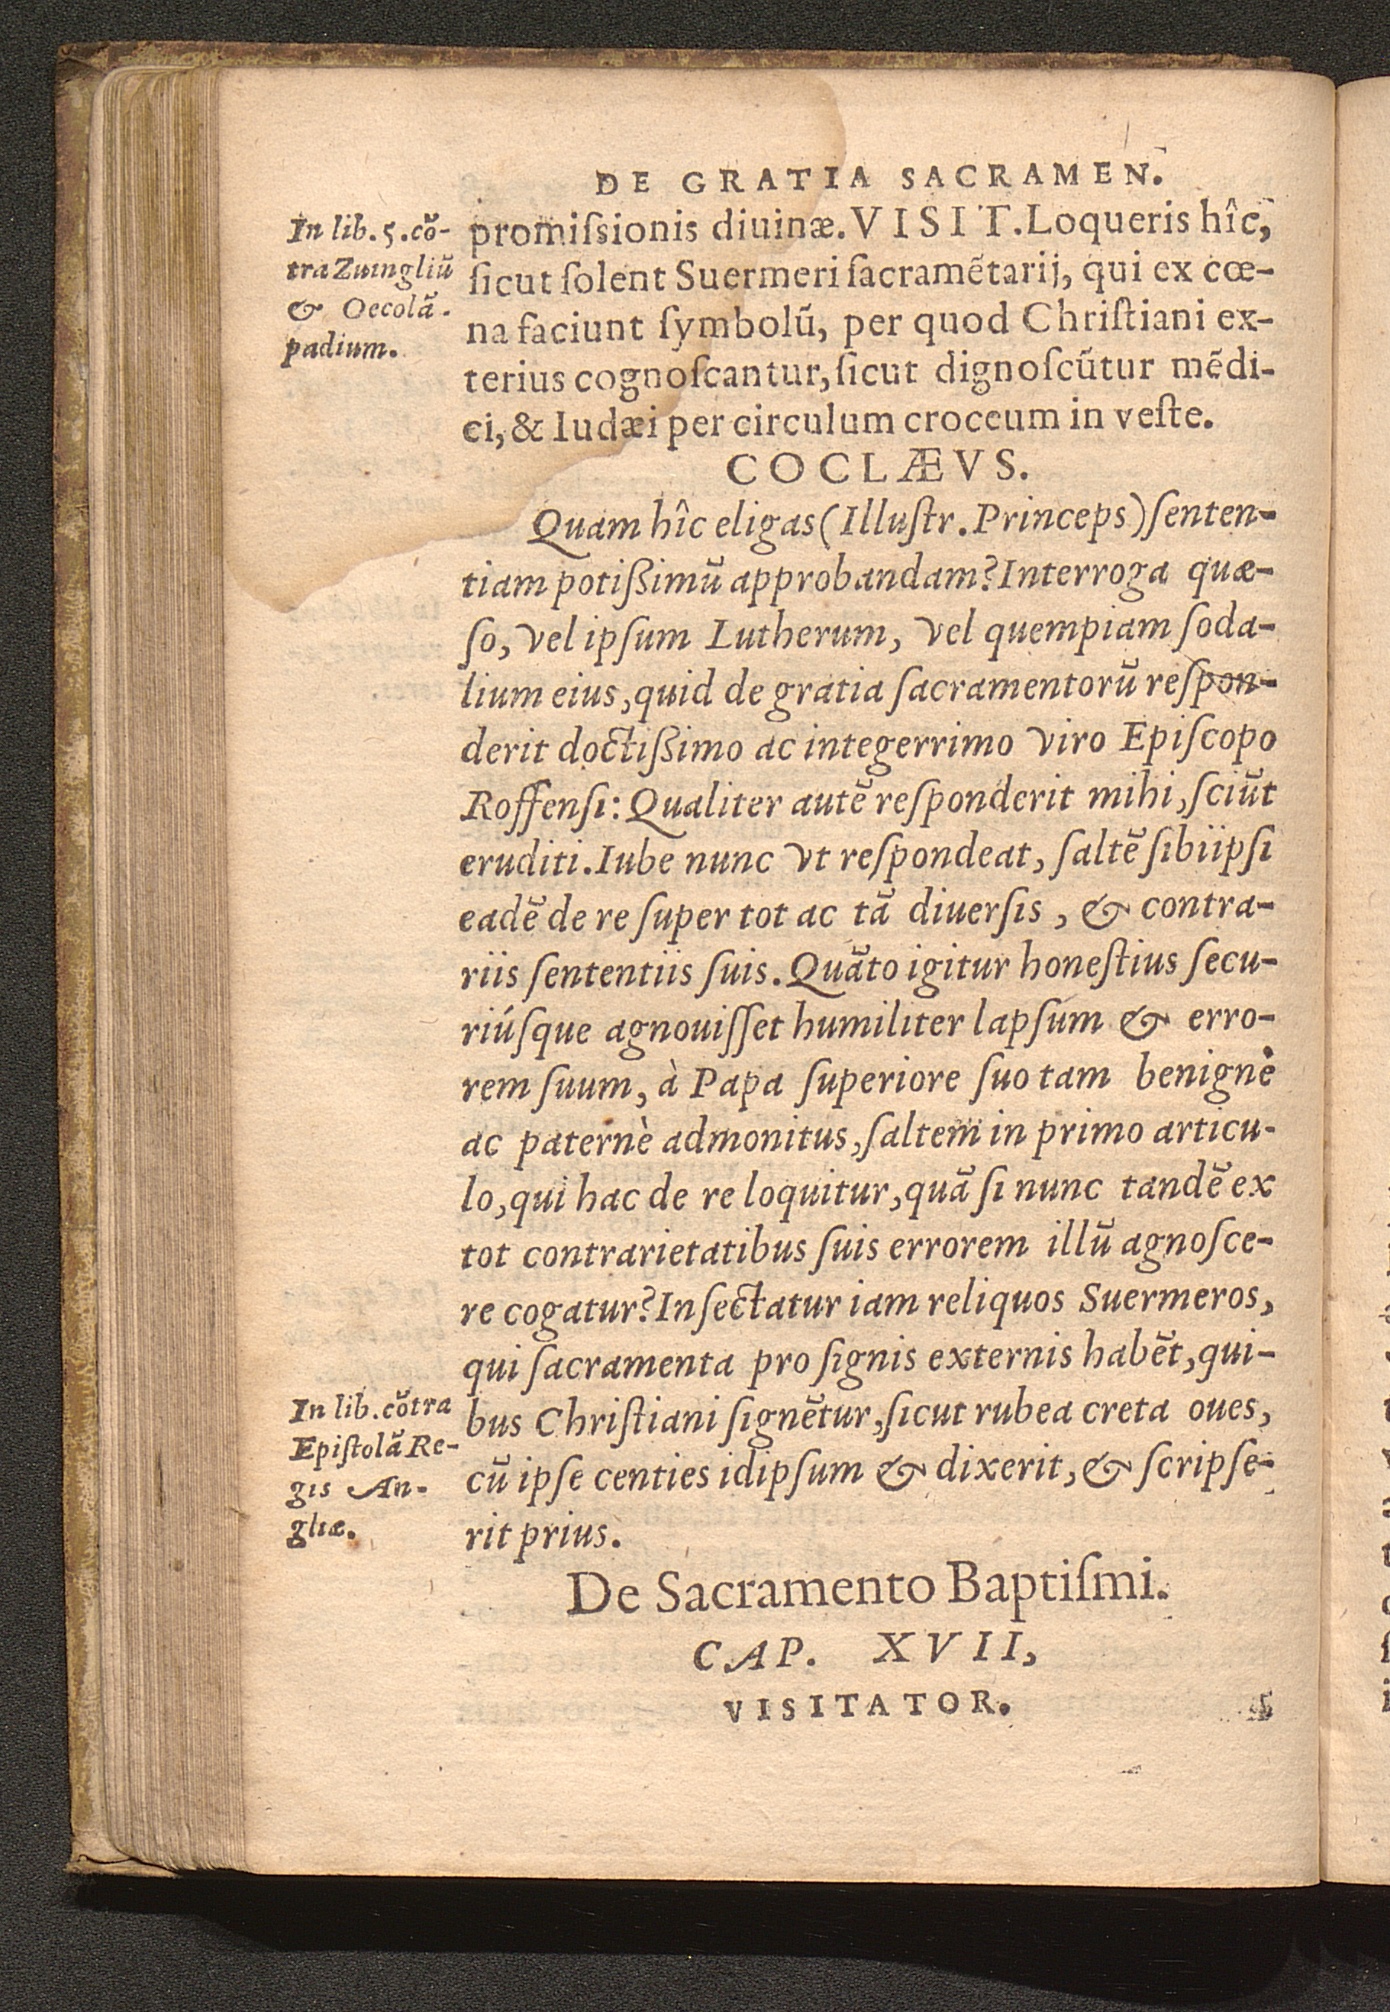 DE GRATIA SACRAMEN.
In lib. 5. cõ-
tra Zuingliũ
& Oecolã.
padium.
promiſsionis diuinæ. VISIT. Loqueris hîc,
ſicut ſolent Suermeri ſacramẽtarij, qui ex cœ-
na faciunt ſymbolũ, per quod Chriſtiani ex-
terius cognoſcantur, ſicut dignoſcũtur mẽdi-
ci, & Iudæi per circulum croceum in veſte.
COCLÆVS.
Quam hîc eligas (Illuſtr. Princeps) ſenten-
tiam potiſsimũ approbandam? Interroga quæ-
ſo, vel ipſum Lutherum, vel quempiam ſoda-
lium eius, quid de gratia ſacramentorũ reſpon-
derit doctiſsimo ac integerrimo viro Epiſcopo
Roffenſi: Qualiter autẽ reſponderit mihi, ſciũt
eruditi. Iube nunc vt reſpondeat, ſaltẽ ſibiipſi
eadẽ de re ſuper tot ac tã diuerſis, & contra-
riis ſententiis ſuis. Quãto igitur honeſtius ſecu-
riúſque agnouiſſet humiliter lapſum & erro-
rem ſuum, à Papa ſuperiore ſuo tam benignè
ac paternè admonitus, ſaltem in primo articu-
lo, qui hac de re loquitur, quã ſi nunc tandẽ ex
tot contrarietatibus ſuis errorem illũ agnoſce-
re cogatur? Inſectatur iam reliquos Suermeros,
qui ſacramenta pro ſignis externis habẽt, qui-
bus Chriſtiani ſignẽtur, ſicut rubea creta oues,
cũ ipſe centies idipſum & dixerit, & ſcripſe-
rit prius.
In lib. cõtra
Epiſtolã Re-
gis An-
gliæ.
De Sacramento Baptiſmi.
CAP. XVII,
VISITATOR.